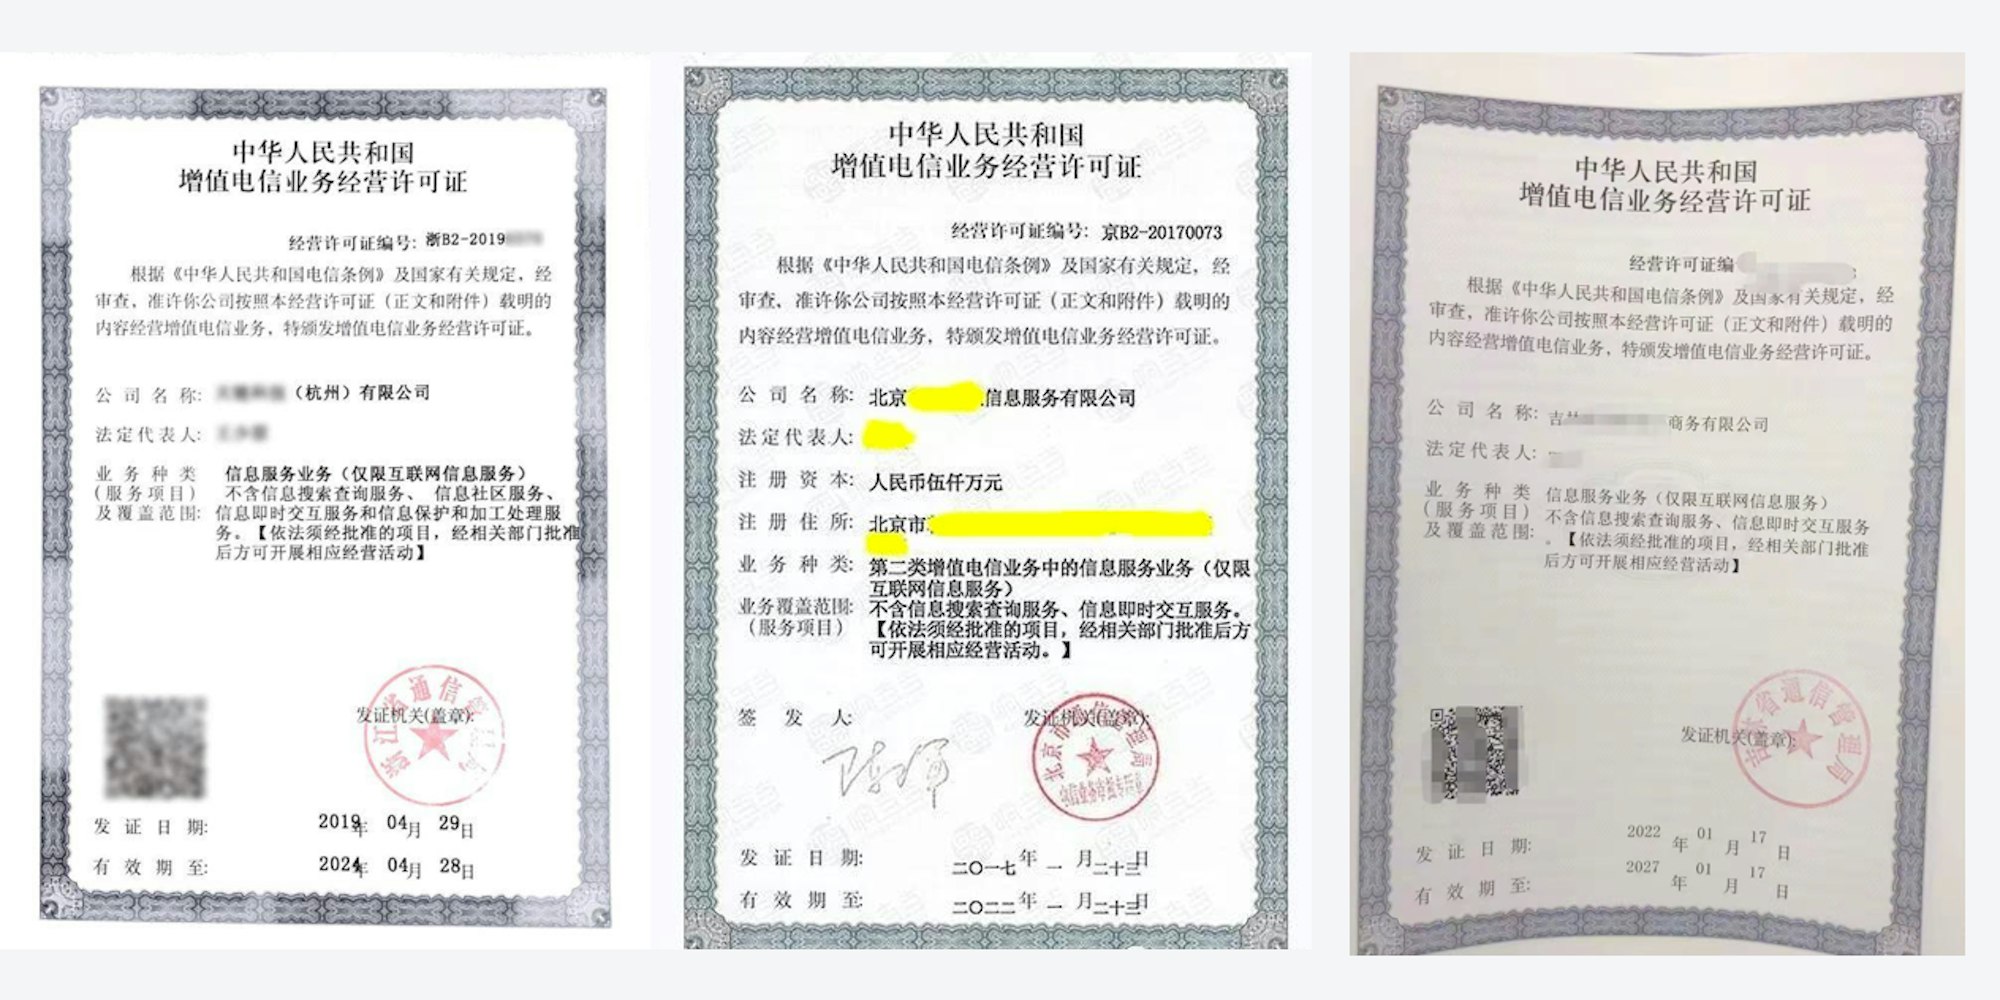 中华人民共和国
增值电信业务经营许可证
经营许可证编号: 浙B2-2019
根据《中华人民共和国电信条例》及国家有关规定，经
审查，准许你公司按照本经营许可证（正文和附件）载明的
内容经营增值电信业务，特颁发增值电信业务经营许可证。
公司名称: （杭州）有限公司
法定代表人:
业务种类 信息服务业务（仅限互联网信息服务）
（服务项目） 不含信息搜索查询服务、 信息社区服务、
及覆盖范围: 信息即时交互服务和信息保护和加工处理服
务。【依法须经批准的项目，经相关部门批准
后方可开展相应经营活动】
浙江省通信管理局
发证机关(盖章):
发证日期: 2019年 04月 29日
有效期至: 2024年 04月 28日
中华人民共和国
增值电信业务经营许可证
经营许可证编号: 京B2-20170073
根据《中华人民共和国电信条例》及国家有关规定，经
审查，准许你公司按照本经营许可证（正文和附件）载明的
内容经营增值电信业务，特颁发增值电信业务经营许可证。
公司名称: 北京 信息服务有限公司
法定代表人:
注册资本: 人民币伍仟万元
注册住所: 北京市
业务种类: 第二类增值电信业务中的信息服务业务（仅限
互联网信息服务）
业务覆盖范围: 不含信息搜索查询服务、信息即时交互服务。
（服务项目） 【依法须经批准的项目，经相关部门批准后方
可开展相应经营活动。】
签发人:
发证机关(盖章):
北京市通信管理局
发证日期: 二〇一七年 一 月二十三日
有效期至: 二〇二二年 一 月二十三日
中华人民共和国
增值电信业务经营许可证
经营许可证编
根据《中华人民共和国电信条例》及国家有关规定，经
审查，准许你公司按照本经营许可证（正文和附件）载明的
内容经营增值电信业务，特颁发增值电信业务经营许可证。
公司名称: 吉林 商务有限公司
法定代表人:
业务种类 信息服务业务（仅限互联网信息服务）
（服务项目） 不含信息搜索查询服务、信息即时交互服务
及覆盖范围: 。【依法须经批准的项目，经相关部门批准
后方可开展相应经营活动】
吉林省通信管理局
发证机关(盖章):
发证日期: 2022年 01月 17日
有效期至: 2027年 01月 17日